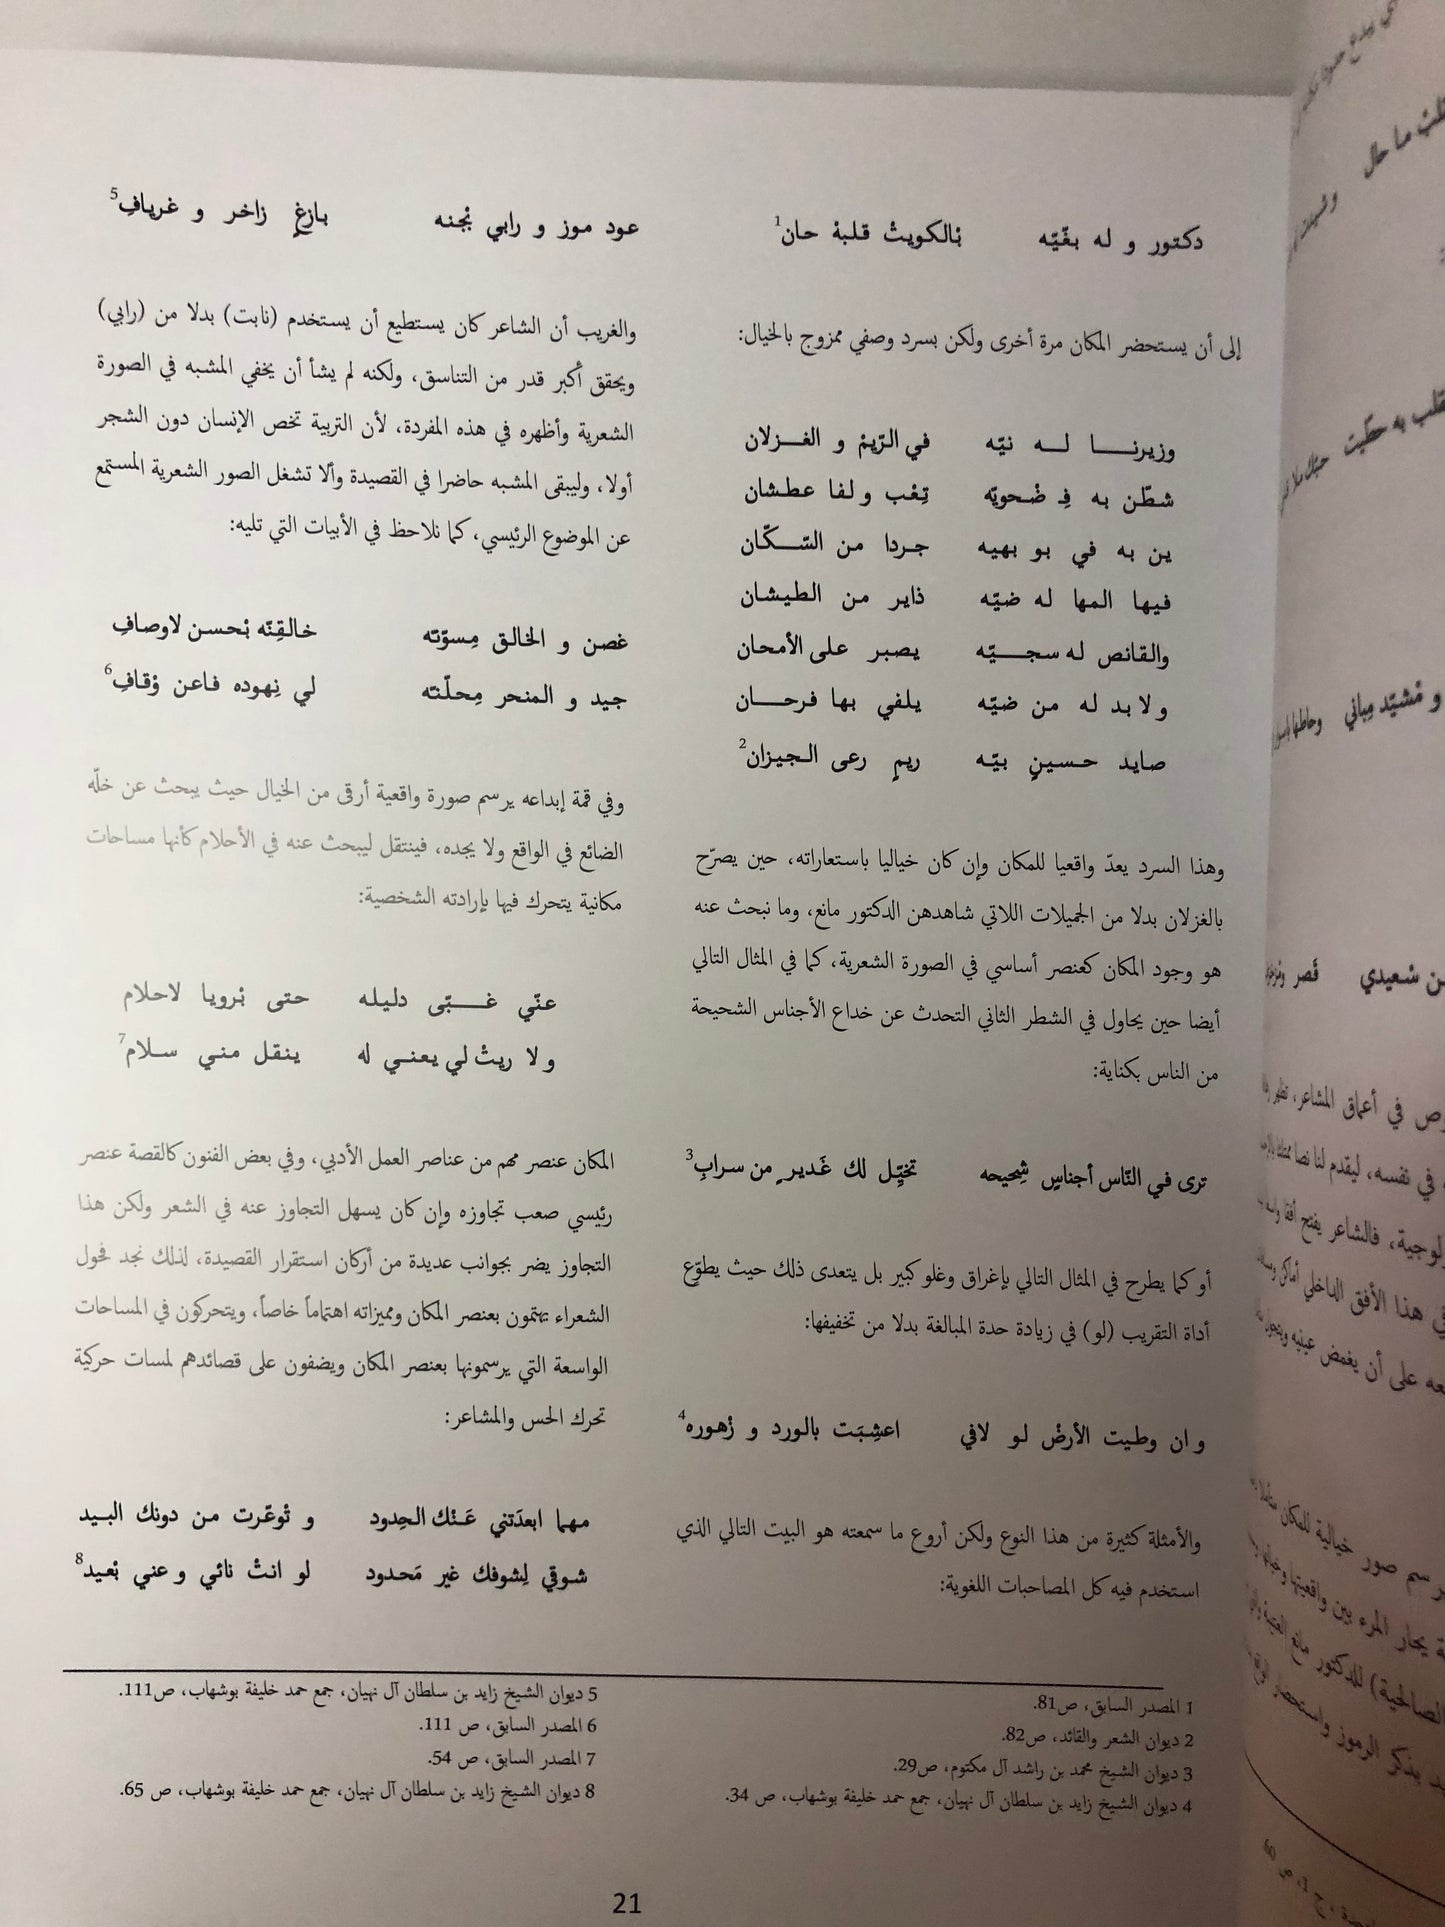 دكتور و له بغّيّه    بْالكويتْ قلبهْ حان1
إلى أن يستحضر المكان مرة أخرى ولكن بسرد وصفي ممزوج بالخيال:
وزيرنا له نيّه    في الرّيمْ و الغزلان
شطّن به فِ ضْحويّه    تِعْب و لفا عطشان
ين به في بو بهيه    جردا من السّكّان
فيها المها له ضيّه    ذاير من الطيشان
والقانص له سجيّه    يصبر على الأمحان
و لا بد له من ضيّه    يلفي بها فرحان
صايد حسينٍ بيّه    ريمٍ رعى الجيزان2
وهذا السرد يعدّ واقعيا للمكان وإن كان خياليا باستعاراته، حين يصرّح
بالغزلان بدلا من الجميلات اللاتي شاهدهن الدكتور مانع، وما نبحث عنه
هو وجود المكان كعنصر أساسي في الصورة الشعرية، كما في المثال التالي
أيضا حين يحاول في الشطر الثاني التحدث عن خداع الأجناس الشحيحة
من الناس بكناية:
ترى في النّاس أجناسٍ شِحيحه    تخيِّل لك غَديرٍ من سرابِ3
أو كما يطرح في المثال التالي بإغراق وغلو كبير بل يتعدى ذلك حيث يطوّع
أداة التقريب (لو) في زيادة حدة المبالغة بدلا من تخفيفها:
و ان وطيت الأرضْ لو لافي    اعشِبَت بالورد و زْهوره4
والأمثلة كثيرة من هذا النوع ولكن أروع ما سمعته هو البيت التالي الذي
استخدم فيه كل المصاحبات اللغوية:
1 المصدر السابق، ص81.
2 ديوان الشعر والقائد، ص82.
3 ديوان الشيخ محمد بن راشد آل مكتوم، ص29.
4 ديوان الشيخ زايد بن سلطان آل نهيان، جمع حمد خليفة بوشهاب، ص 34.
عود موز و رابي بْجنه    بازغٍ زاخر و غريافِ5
والغريب أن الشاعر كان يستطيع أن يستخدم (نابت) بدلا من (رابي)
ويحقق أكبر قدر من التناسق، ولكنه لم يشأ أن يخفي المشبه في الصورة
الشعرية وأظهره في هذه المفردة، لأن التربية تخص الإنسان دون الشجر
أولا، وليبقى المشبه حاضرا في القصيدة وألا تشغل الصور الشعرية المستمع
عن الموضوع الرئيسي، كما نلاحظ في الأبيات التي تليه:
غصن و الخالق مِسوّنه    خالقِنّه بْحسن لاوصافِ
جيد و المنحر مِحلّنه    لي نِهوده فاعن وْقافِ6
وفي قمة إبداعه يرسم صورة واقعية أرقى من الخيال حيث يبحث عن خلّه
الضائع في الواقع ولا يجده، فينتقل ليبحث عنه في الأحلام كأنها مساحات
مكانية يتحرك فيها بإرادته الشخصية:
عنّي غبّى دليله    حتى بْرويا لاحلام
و لا ريتْ لي يعني له    ينقل مني سلام7
المكان عنصر مهم من عناصر العمل الأدبي، وفي بعض الفنون كالقصة عنصر
رئيسي صعب تجاوزه وإن كان يسهل التجاوز عنه في الشعر ولكن هذا
التجاوز يضر بجوانب عديدة من أركان استقرار القصيدة، لذلك نجد فحول
الشعراء يهتمون بعنصر المكان ومميزاته اهتماماً خاصاً، ويتحركون في المساحات
الواسعة التي يرسمونها بعنصر المكان ويضفون على قصائدهم لمسات حركية
تحرك الحس والمشاعر:
مهما ابعدَتني عَنْك الحِدود    و تْوعّرت من دونك البيد
شوقي لِشوفك غير مَحدود    لو انتْ نائي و عني بْعيد8
5 ديوان الشيخ زايد بن سلطان آل نهيان، جمع حمد خليفة بوشهاب، ص111.
6 المصدر السابق، ص 111.
7 المصدر السابق، ص 54.
8 ديوان الشيخ زايد بن سلطان آل نهيان، جمع حمد خليفة بوشهاب، ص 65.
21